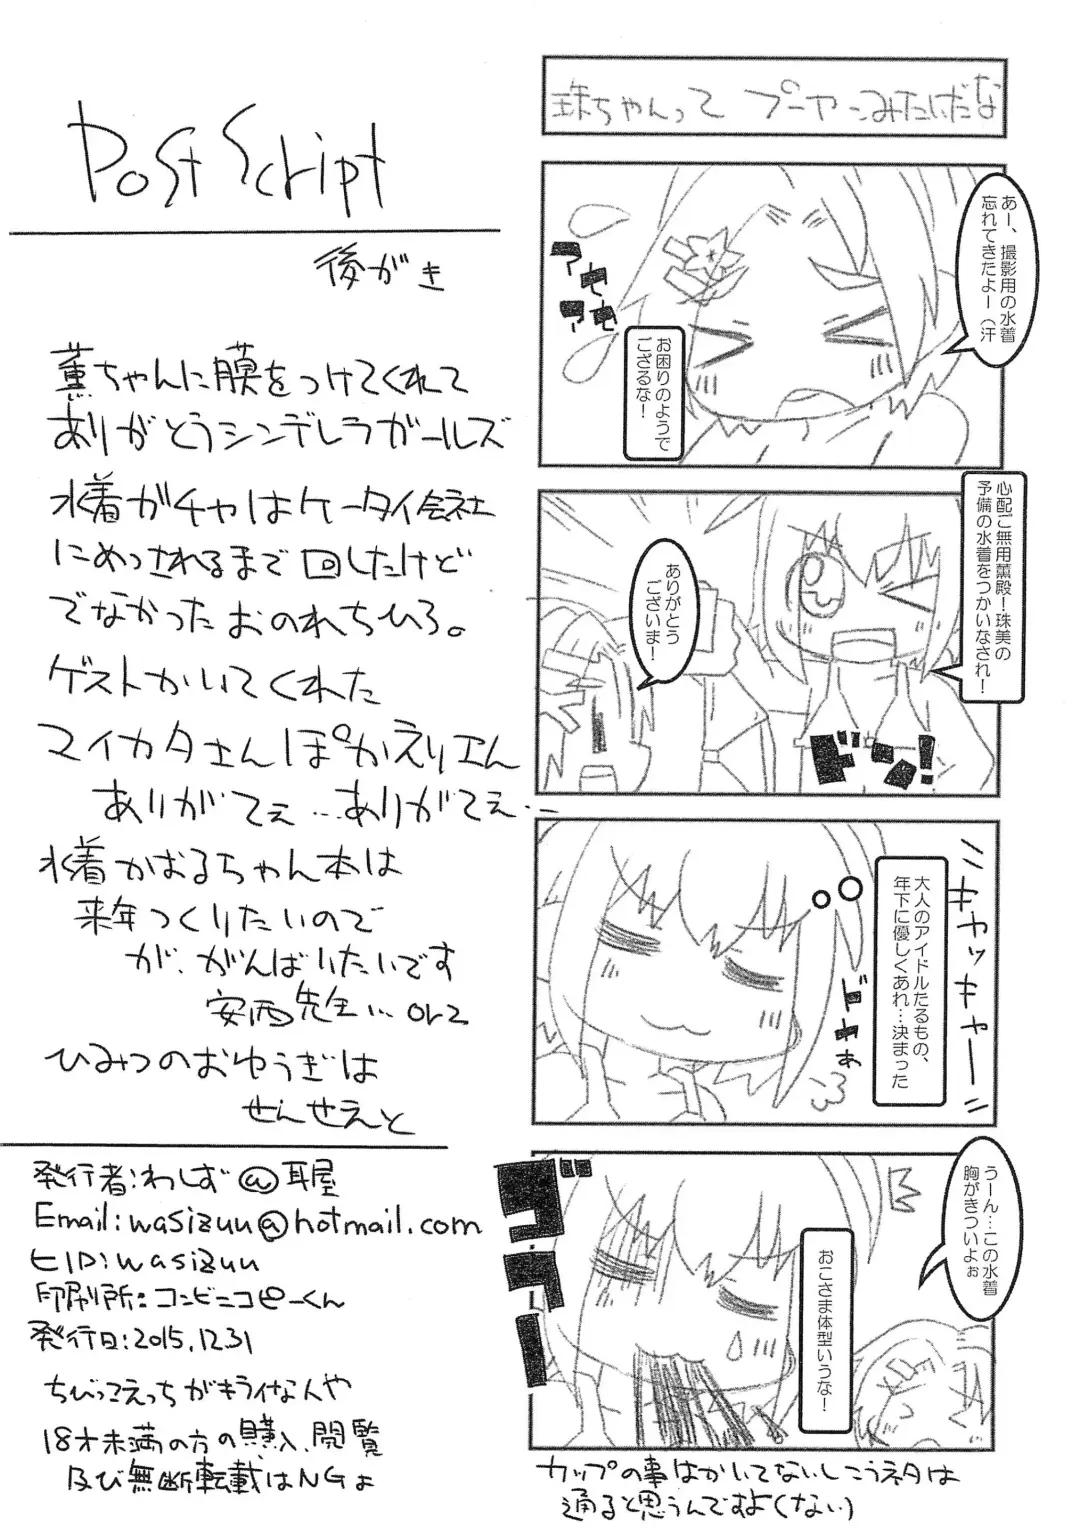 Post Script
後がき
薫ちゃんに膜をつけてくれて
ありがとうシンデレラガールズ
水着ガチャはケータイ会社
にめっされるまで回したけど
でなかったおのれちひろ。
ゲストかいてくれた
マイカタさんぽかえりエん
ありがてぇ…ありがてぇ…
水着かおるちゃん本は
来年つくりたいので
が、がんばりたいです
安西先生… orz
ひみつのおゆうぎは
せんせえと
発行者:わしず@耳屋
Email:wasizuu@hotmail.com
ヒID:wasizuu
印刷所:コンビニコピーくん
発行日:2015.12.31
ちびっこえっちがキライな人や
18才未満の方の購入、閲覧
及び無断転載はNGよ
珠ちゃんって プーヤンみたいだな
あー、撮影用の水着
忘れてきたよー(汗
アセ
アセ
お困りのようで
ござるな!
心配ご無用薫殿!珠美の
予備の水着をつかいなされ!
ありがとう
ございま!
ビシっ!
大人のアイドルたるもの、
年下に優しくあれ…決まった
キャッキャー
ドやぁ
うーん…この水着
胸がきついよぉ
おこさま体型いうな!
ゴフー
カップの事はかいてないしこうネタは
通ると思うんですよ(ない)